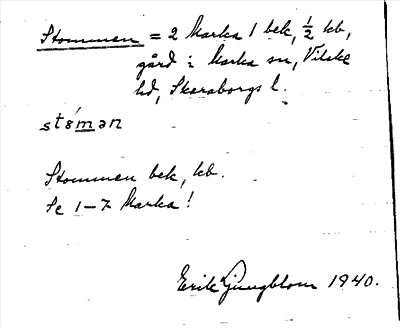 Stommen = 2 Marka 1 bek, ½ kb,
gård i Marka sn, Vilske
hd, Skaraborgs l.
stómən
Stommen bek, kb.
Se 1–7 Marka!
Erik Ljungblom 1940.